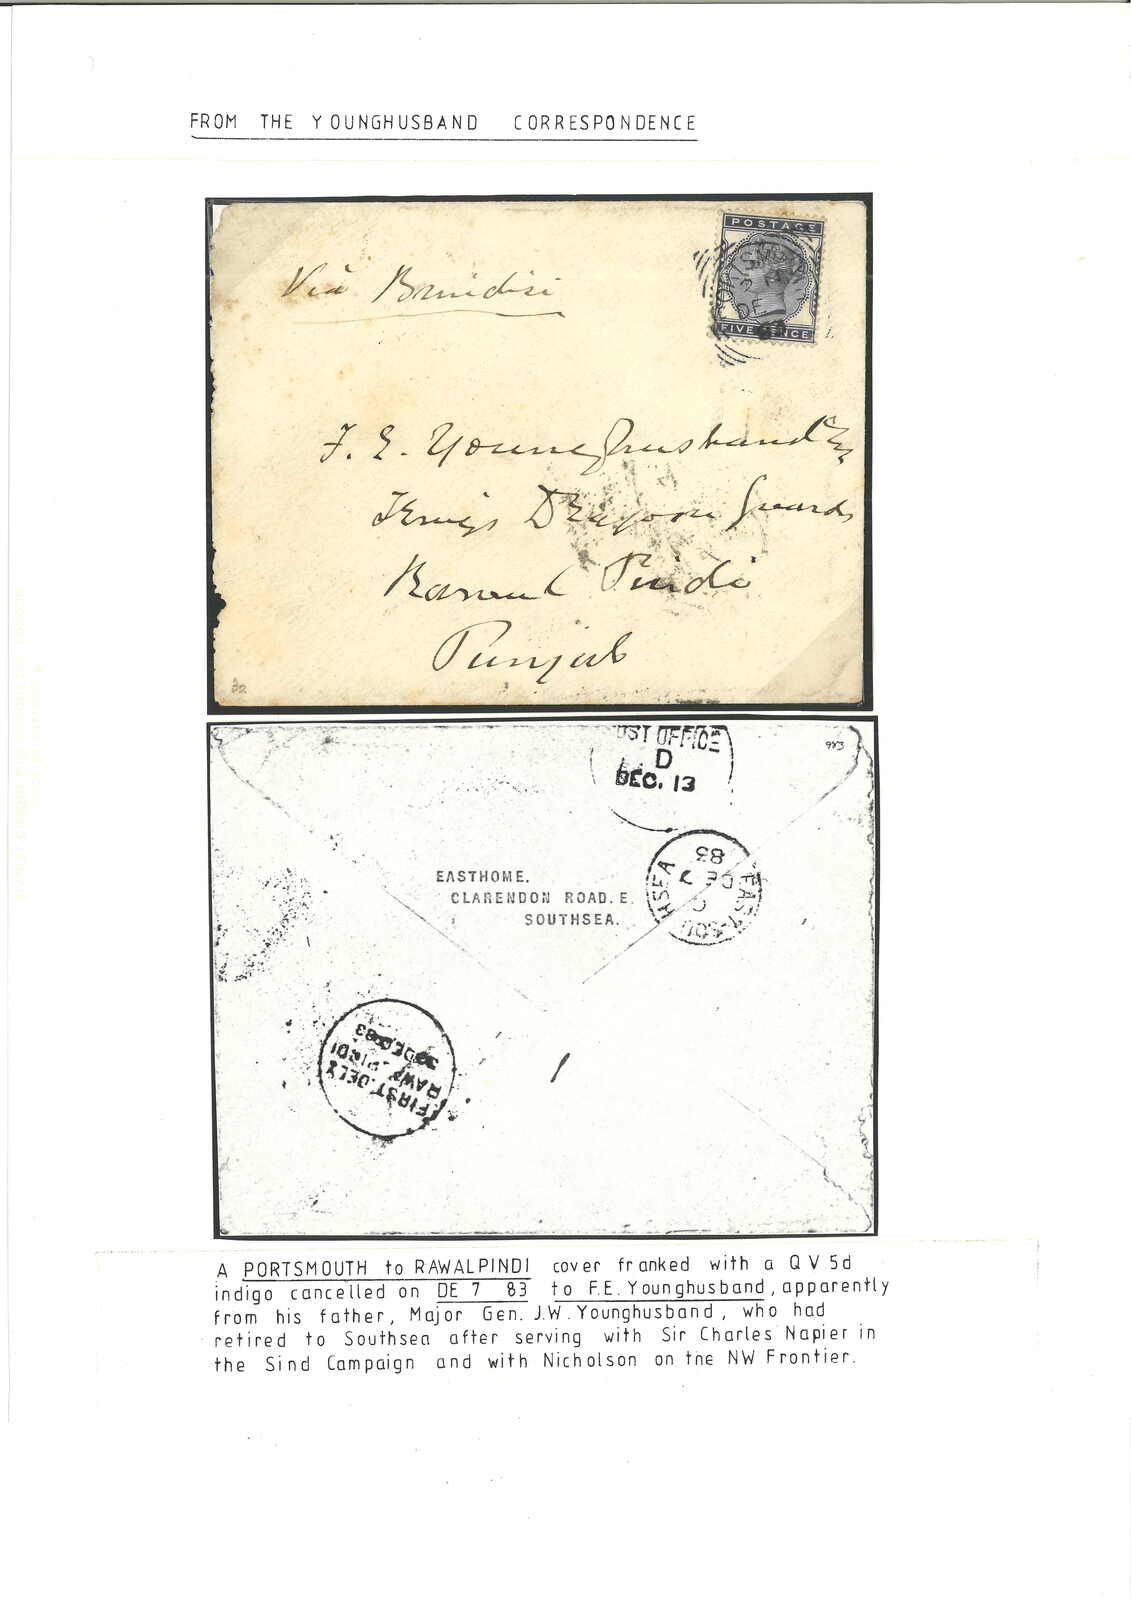 FROM THE YOUNGHUSBAND CORRESPONDENCE
Via Brindisi
POSTAGE
FIVE PENCE
DE
F. E. Younghusband Esq
Kings Dragoon Guards
Rawul Pindi
Punjab
32
OST OFFICE
D
DEC. 13
983
EASTHOME.
CLARENDON ROAD. E.
SOUTHSEA.
EAST-SOUTHSEA
C
DE 7
83
FIRST. DELY
RAWAL PINDI
30 DEC. 83
A PORTSMOUTH to RAWALPINDI cover franked with a QV 5d
indigo cancelled on DE 7 83 to F.E. Younghusband, apparently
from his father, Major Gen. J.W. Younghusband, who had
retired to Southsea after serving with Sir Charles Napier in
the Sind Campaign and with Nicholson on the NW Frontier.